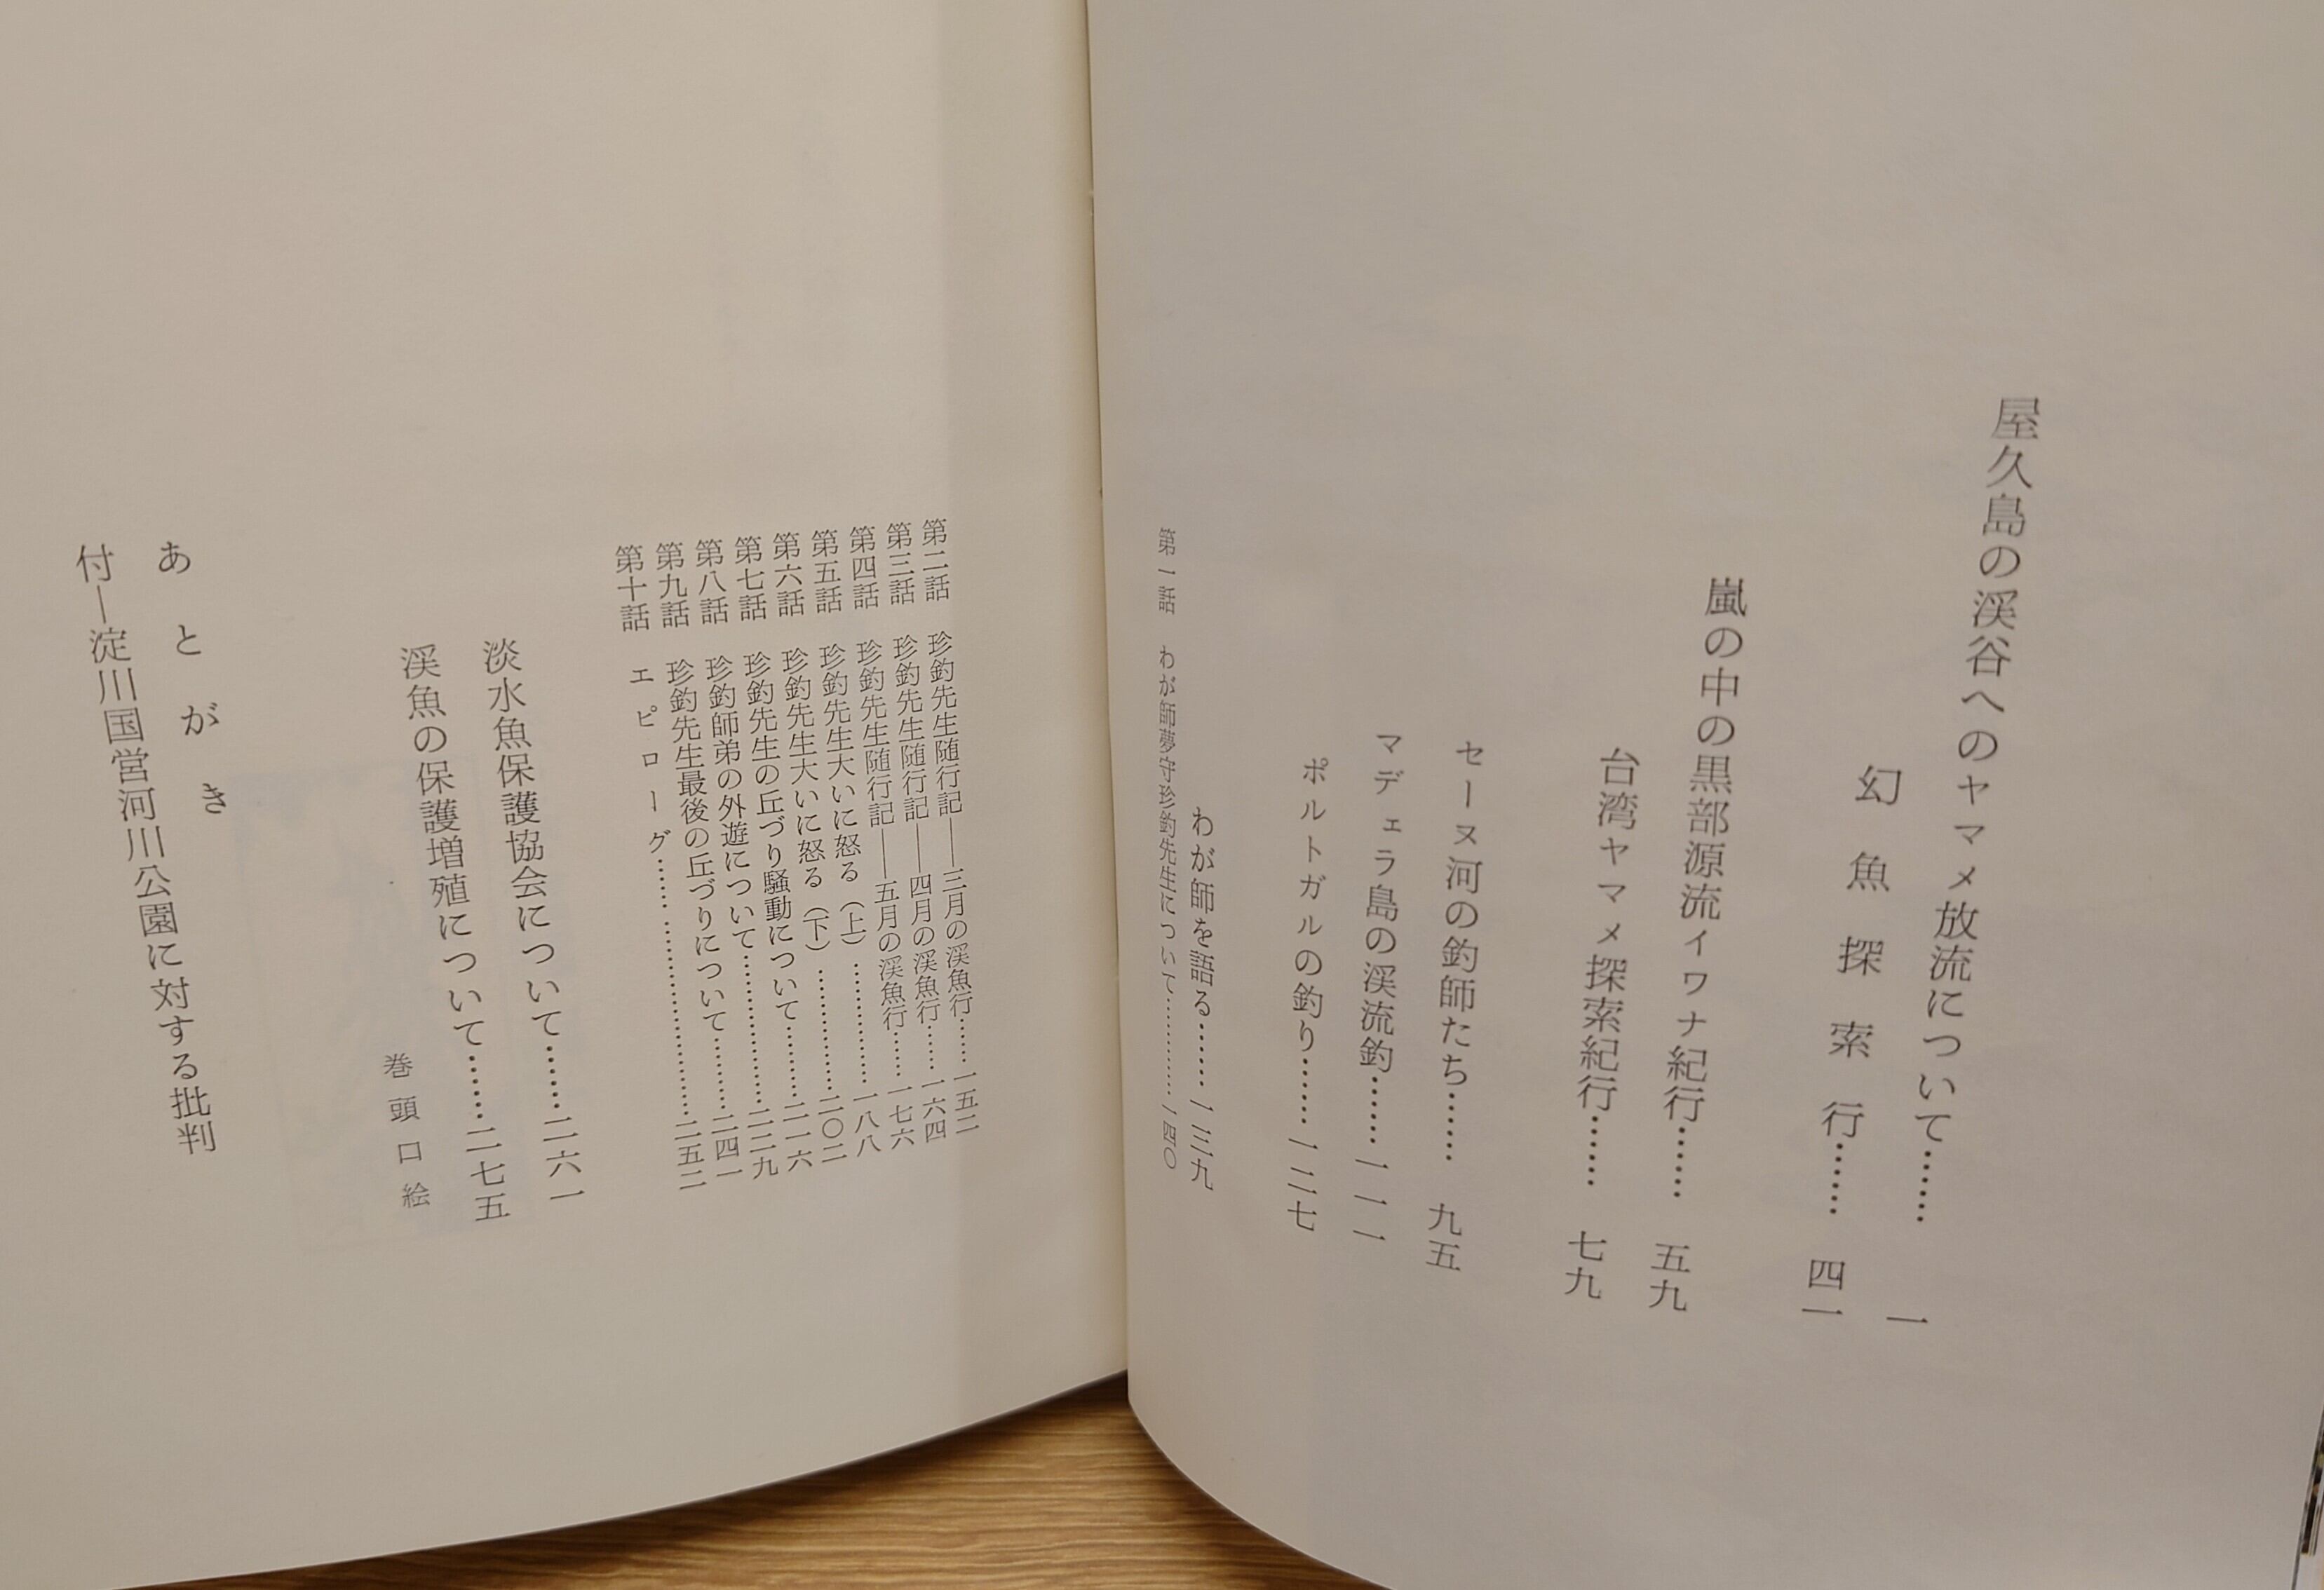 屋久島の渓谷へのヤマメ放流について…… 一
幻魚探索行…… 四一
嵐の中の黒部源流イワナ紀行…… 五九
台湾ヤマメ探索紀行…… 七九
セーヌ河の釣師たち…… 九五
マデェラ島の渓流釣…… 一一一
ポルトガルの釣り…… 一二七
わが師を語る…… 一三九
第一話 わが師夢守珍釣先生について………… 一四〇
第二話 珍釣先生随行記――三月の渓魚行…… 一五二
第三話 珍釣先生随行記――四月の渓魚行…… 一六四
第四話 珍釣先生随行記――五月の渓魚行…… 一七六
第五話 珍釣先生大いに怒る（上）………… 一八八
第六話 珍釣先生大いに怒る（下）………… 二〇二
第七話 珍釣先生の丘づり騒動について……… 二一六
第八話 珍釣師弟の外遊について…………… 二二九
第九話 珍釣先生最後の丘づりについて……… 二四一
第十話 エピローグ…… ………………… 二五二
淡水魚保護協会について…… 二六一
渓魚の保護増殖について…… 二七五
巻頭口絵
あとがき
付―淀川国営河川公園に対する批判